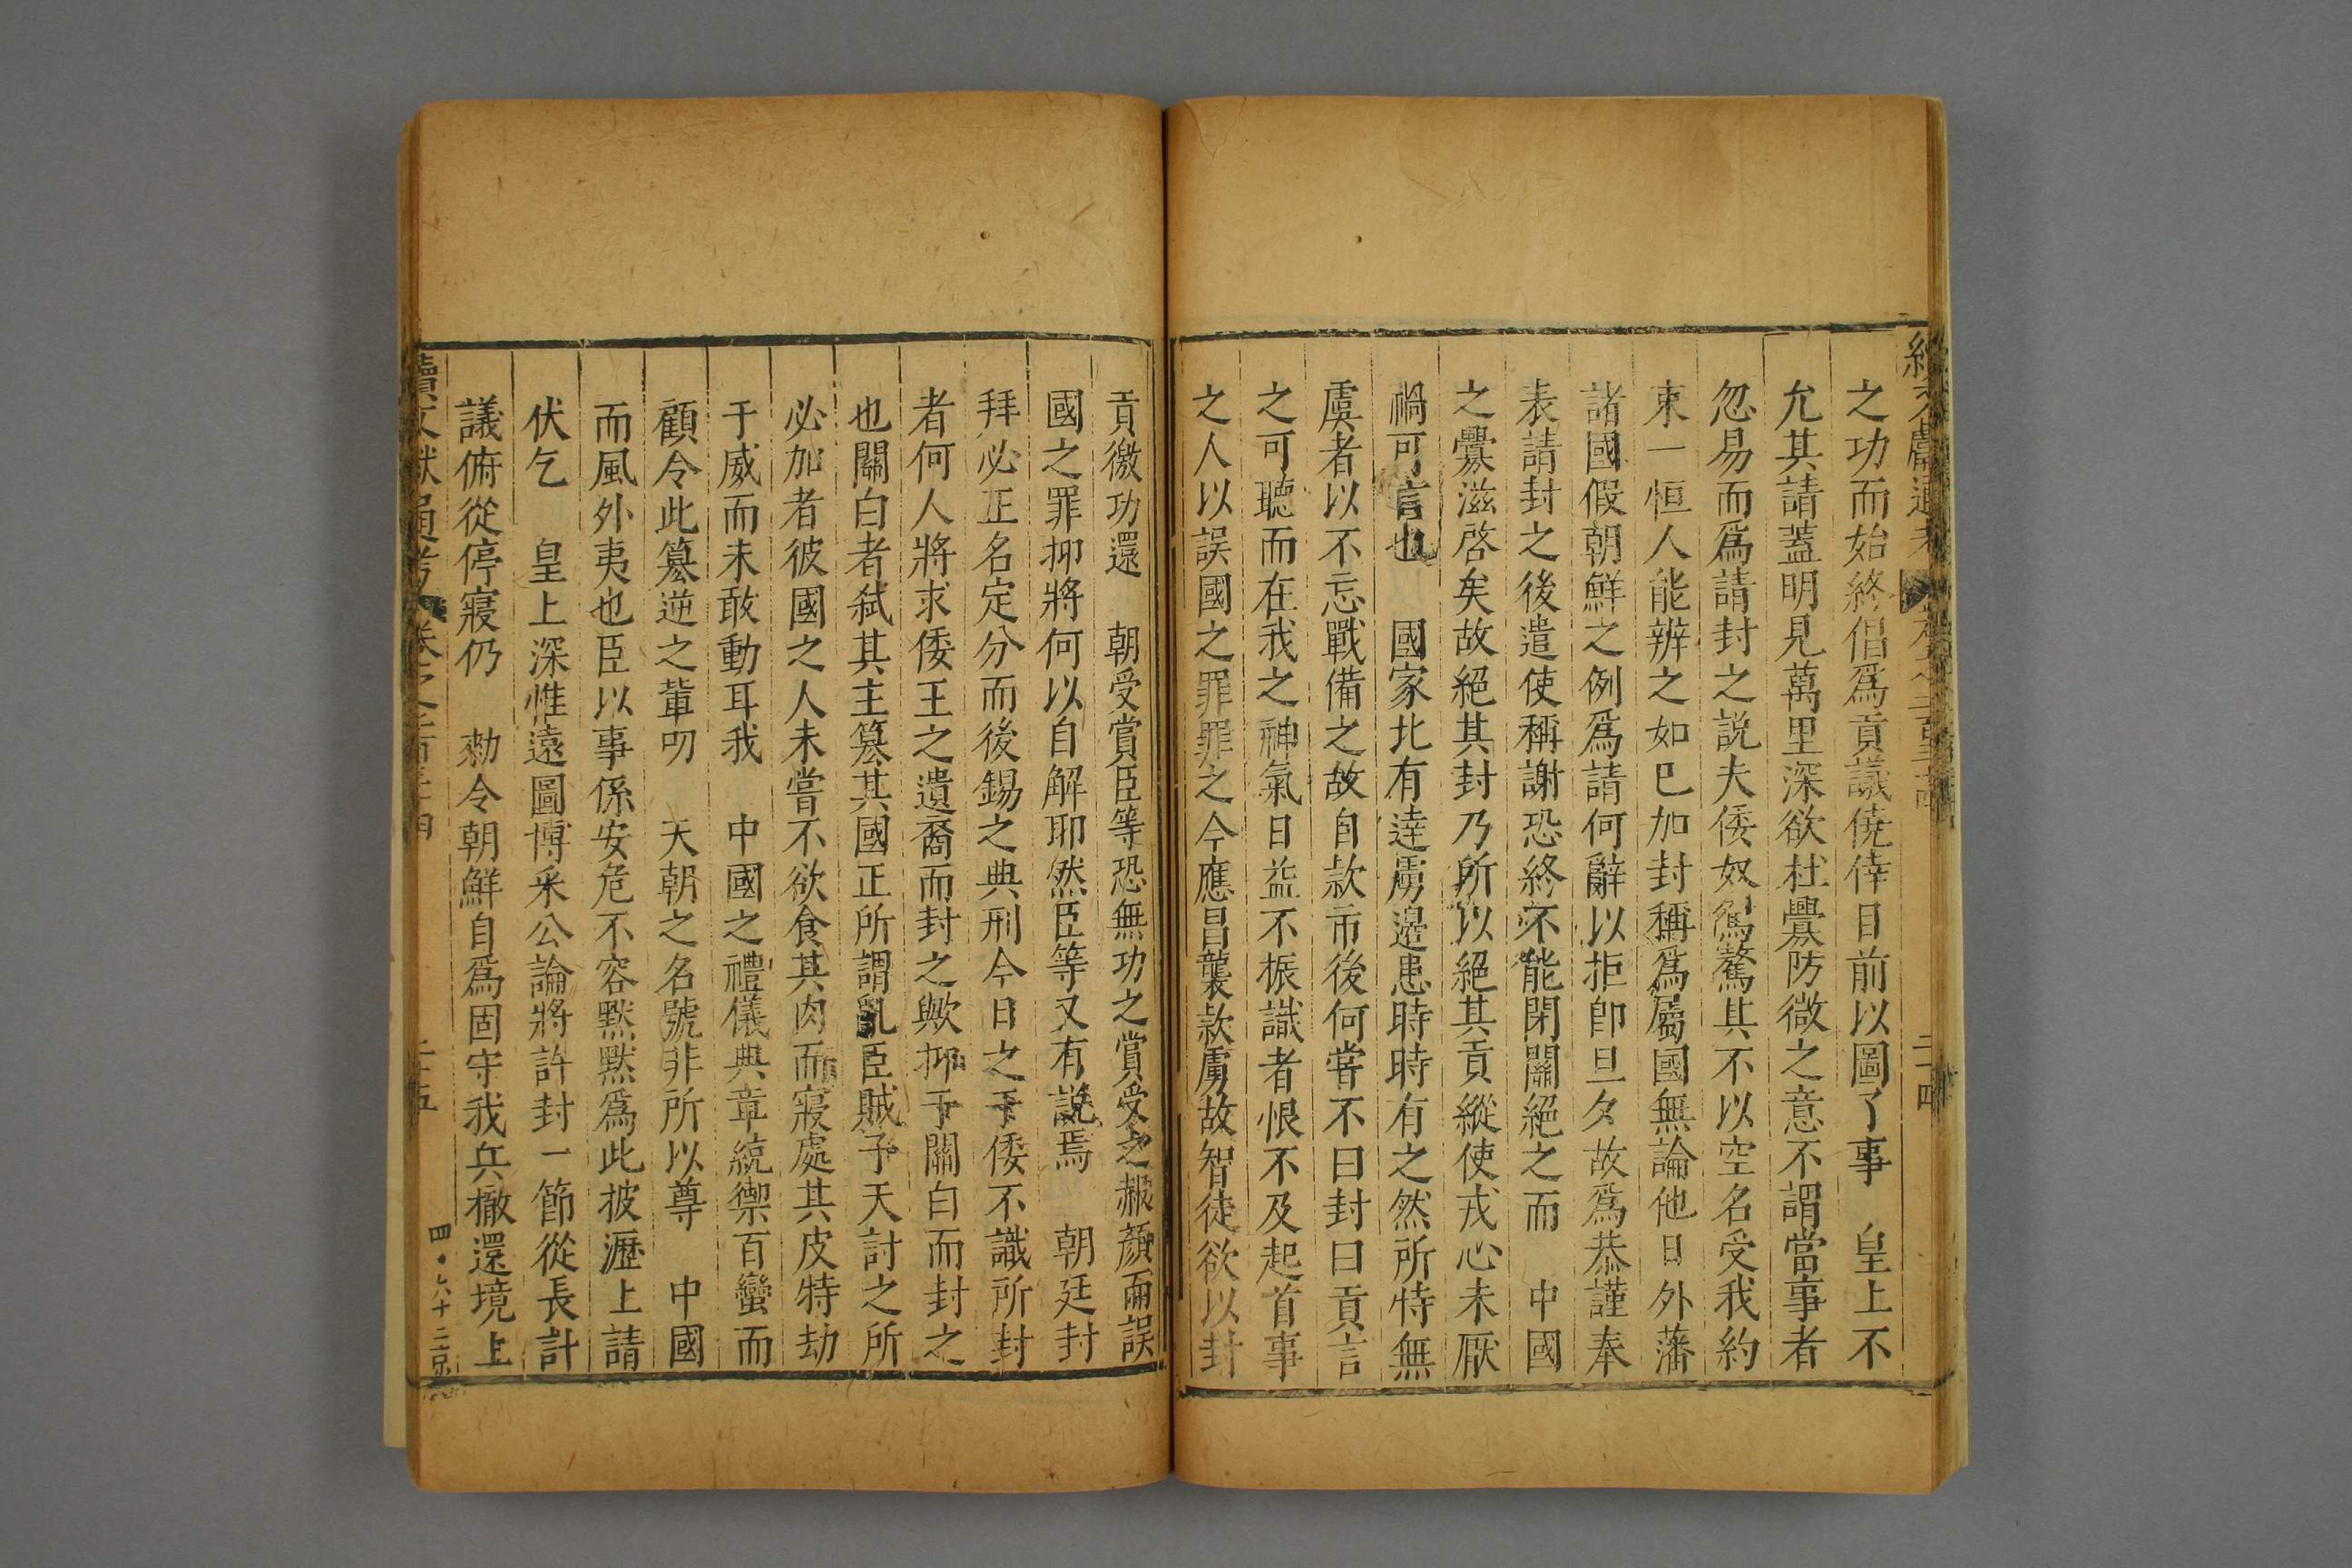 之功而始終倡爲貢議僥倖目前以圖了事　皇上不
允其請葢明見萬里深欲杜釁防微之意不謂當事者
忽易而爲請封之說夫倭奴鴽驁其不以空名受我約
束一恒人能辨之如已加封稱爲屬國無論他日外藩
諸國假朝鮮之例爲請何辭以拒卽旦夕故爲恭謹奉
表請封之後遣使稱謝恐終不能閉關絕之而　中國
之釁滋啓矣故絕其封乃所以絕其貢縱使戎心未厭
禍可言也　國家北有達虜邊患時時有之然所恃無
虞者以不忘戰備之故自款市後何嘗不曰封曰貢言
之可聽而在我之神氣日益不振識者恨不及起首事
之人以誤國之罪罪之今應昌襲款虜故智徒欲以封
貢徼功還　朝受賞臣等恐無功之賞受之赧顏而誤
國之罪抑將何以自解耶然臣等又有說焉　朝廷封
拜必正名定分而後錫之典刑今日之予倭不識所封
者何人將求倭王之遺裔而封之歟抑予關白而封之
也關白者弑其主簒其國正所謂亂臣賊子天討之所
必加者彼國之人未嘗不欲食其肉而寢處其皮特劫
于威而未敢動耳我　中國之禮儀典章統禦百蠻而
顧令此簒逆之輩叨　天朝之名號非所以尊　中國
而風外夷也臣以事係安危不容默默爲此披瀝上請
伏乞　皇上深惟遠圖博采公論將許封一節從長計
議俯從停寢仍　勑令朝鮮自爲固守我兵撤還境上
四·六十二